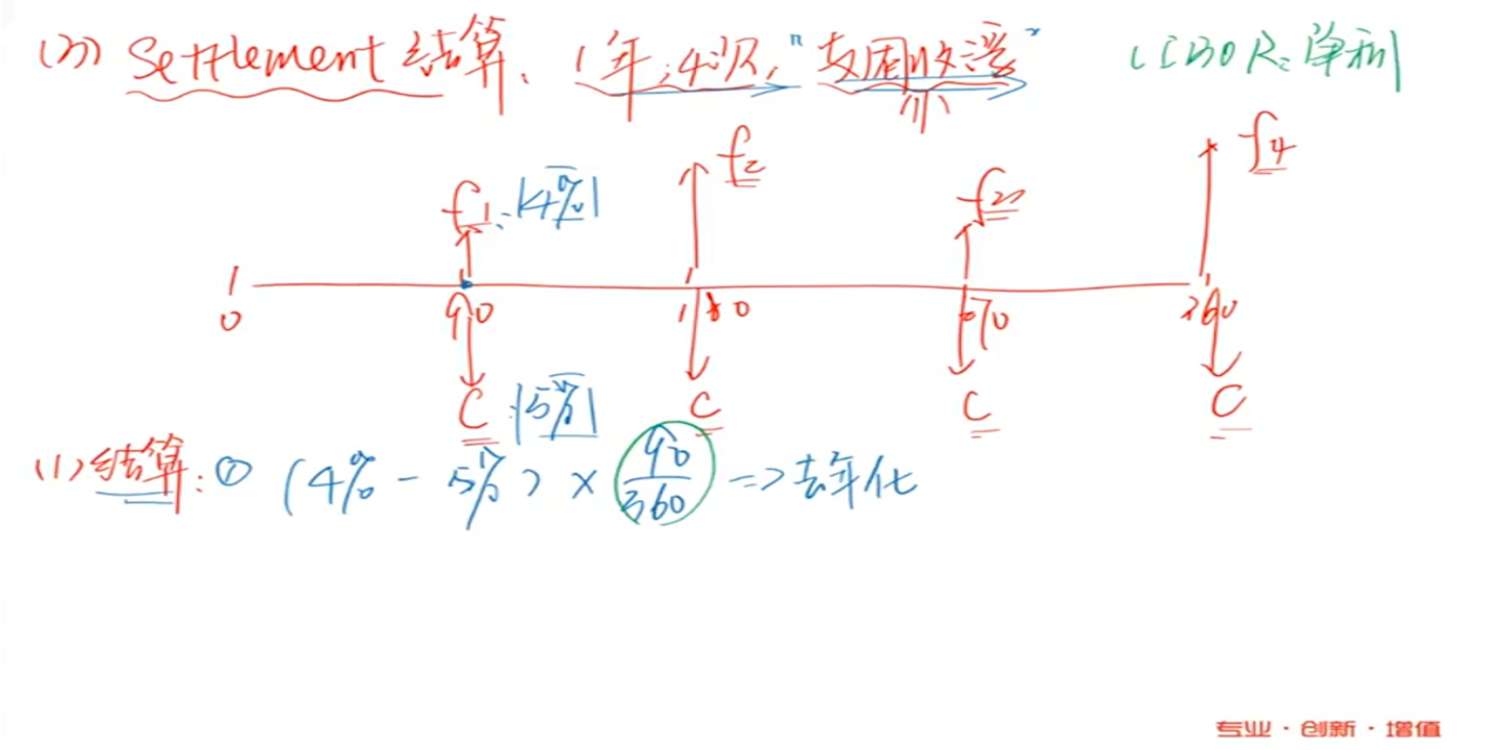 (3) Settlement 结算、1年,4次,“支固收浮” LIBOR:单利
f1:4% f2 f3 f4
0 90 180 270 360
C:5% C C C
(1)结算:① (4% - 5%) × 90/360 => 去年化
专业·创新·增值